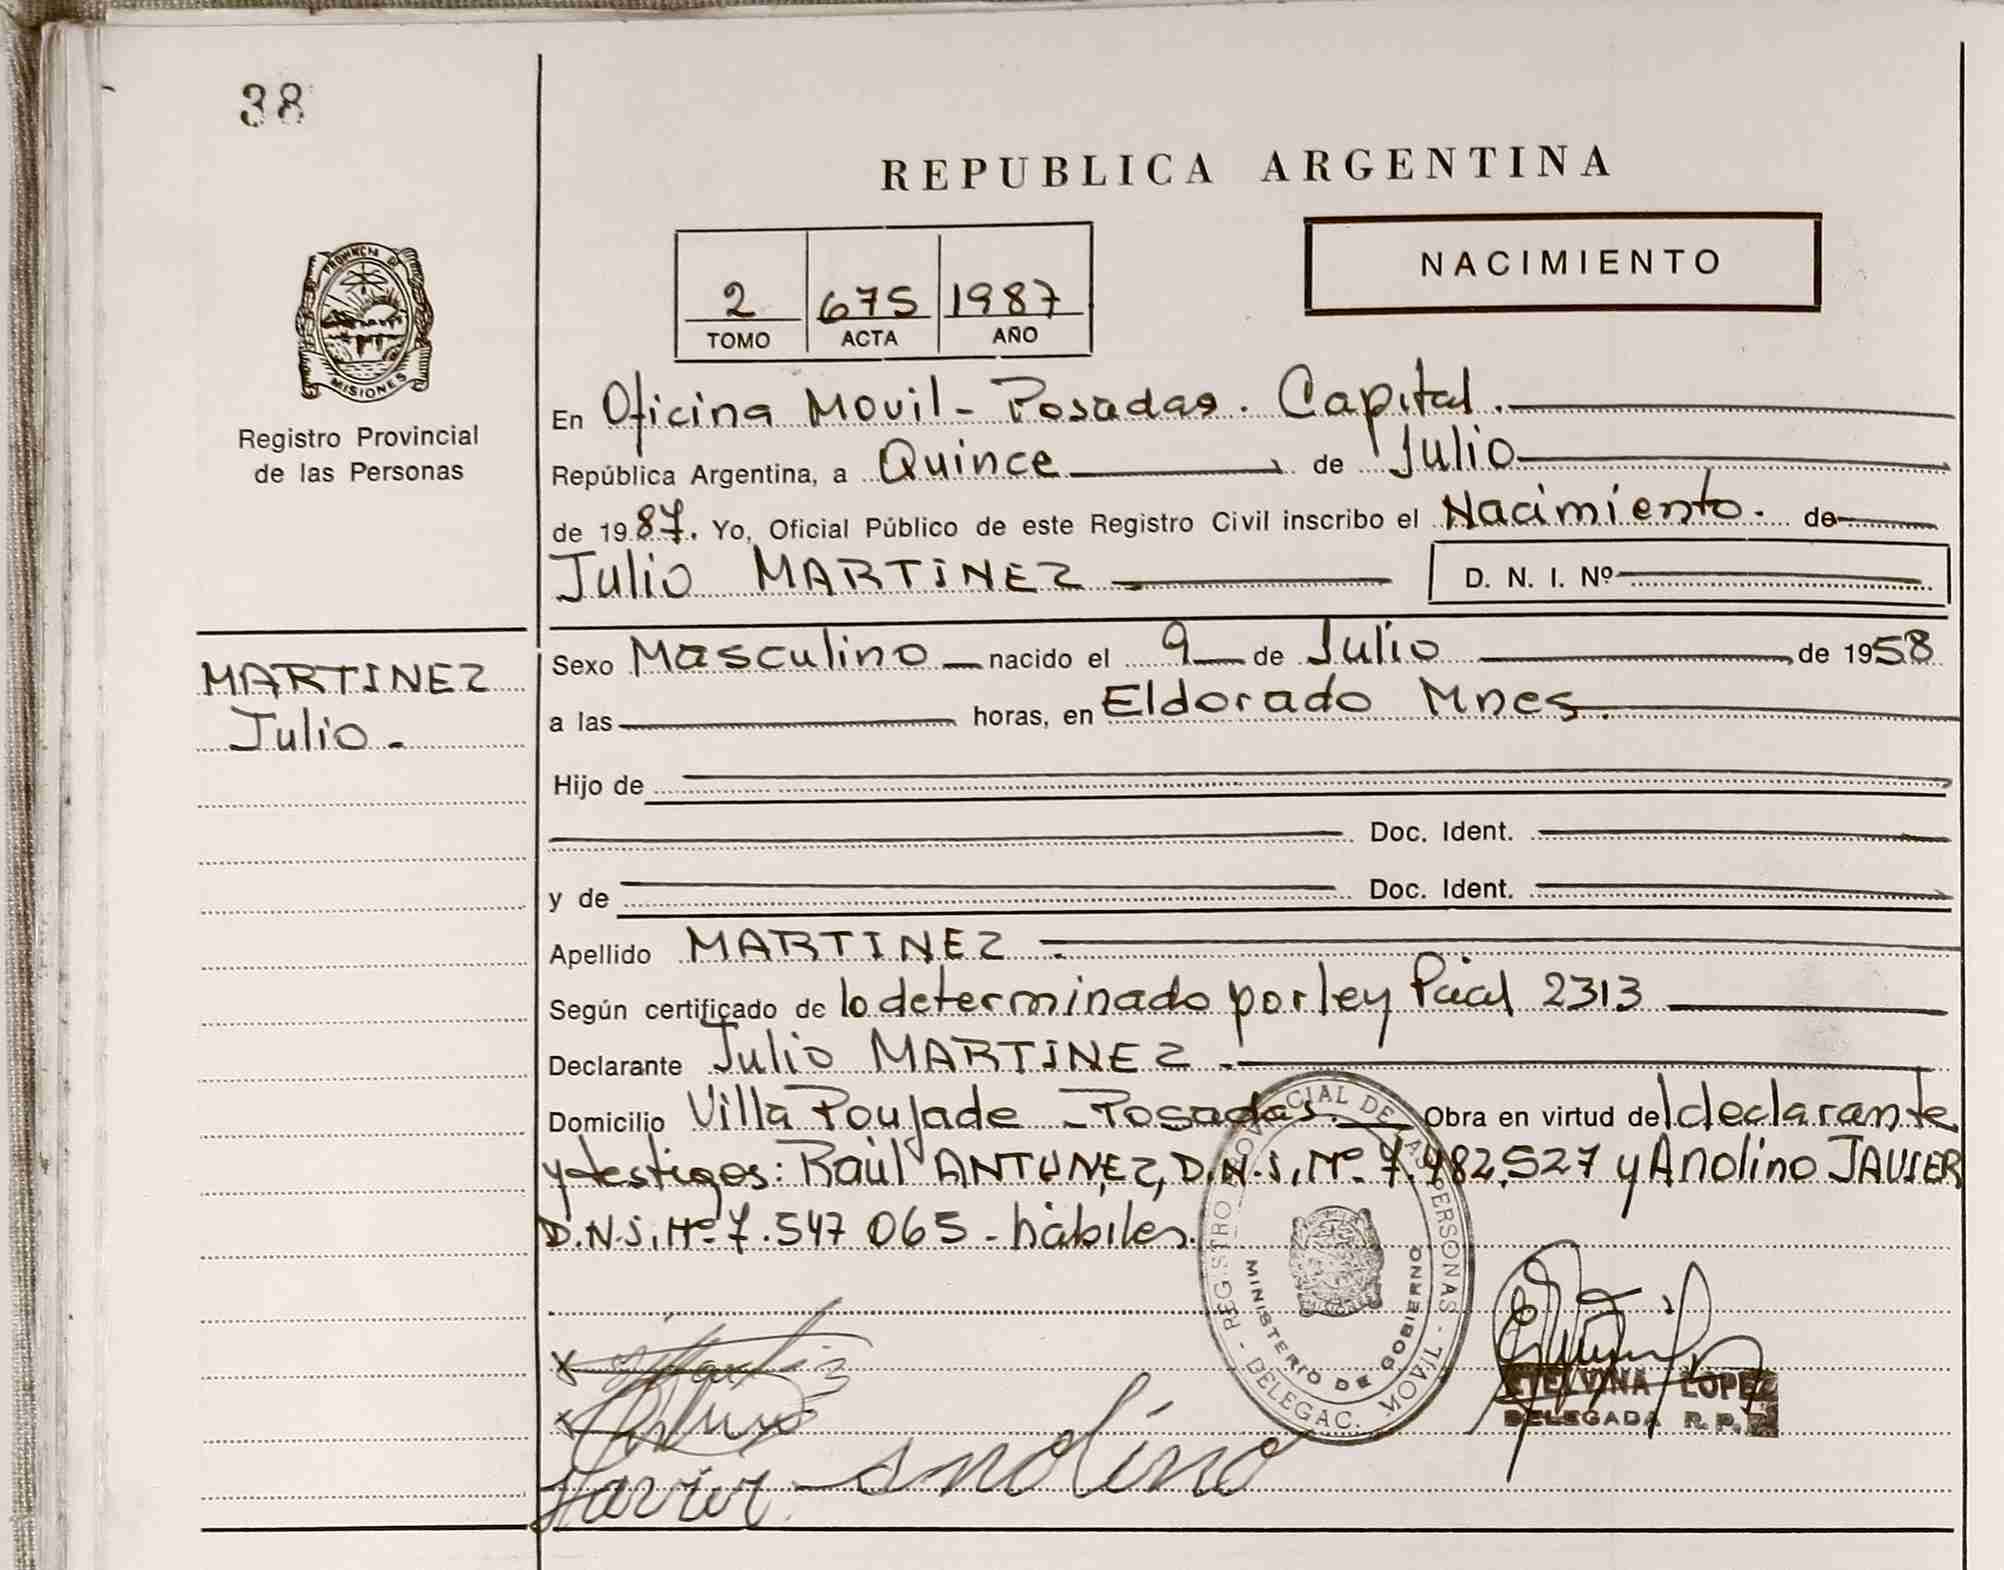 38
REPUBLICA ARGENTINA
NACIMIENTO
2 675 1987
TOMO ACTA AÑO
PROVINCIA DE MISIONES
Registro Provincial
de las Personas
En Oficina Movil - Posadas. Capital.
República Argentina, a Quince de Julio
de 1987. Yo, Oficial Público de este Registro Civil inscribo el Nacimiento. de
Julio MARTINEZ D. N. I. Nº
MARTINEZ
Julio.-
Sexo Masculino nacido el 9 de Julio de 1958
a las horas, en Eldorado Mnes.
Hijo de
Doc. Ident.
y de Doc. Ident.
Apellido MARTINEZ
Según certificado de lo determinado por ley Pcial 2313
Declarante Julio MARTINEZ.-
Domicilio Villa Poujade - Posadas. Obra en virtud del declarante
y testigos: Raúl ANTUNEZ, D.N.I. Nº 7.482.527 y Anolino JAVIER
D.N.I. Nº 7.547 065 - hábiles.
REGISTRO PROVINCIAL DE LAS PERSONAS - DELEGAC. MOVIL -
MINISTERIO DE GOBIERNO
ETELVINA LOPEZ
DELEGADA R. P. P.
Javier Anolino